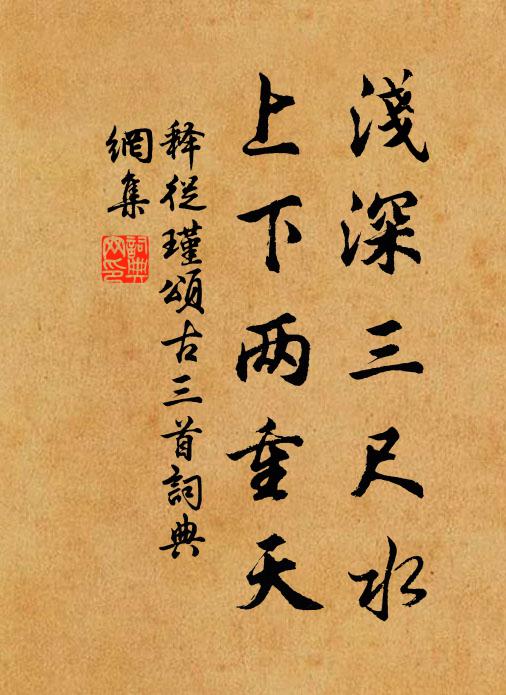 淺深三尺水
上下两重天
释從瑾頌古三首詞典
網集
詞典
网印